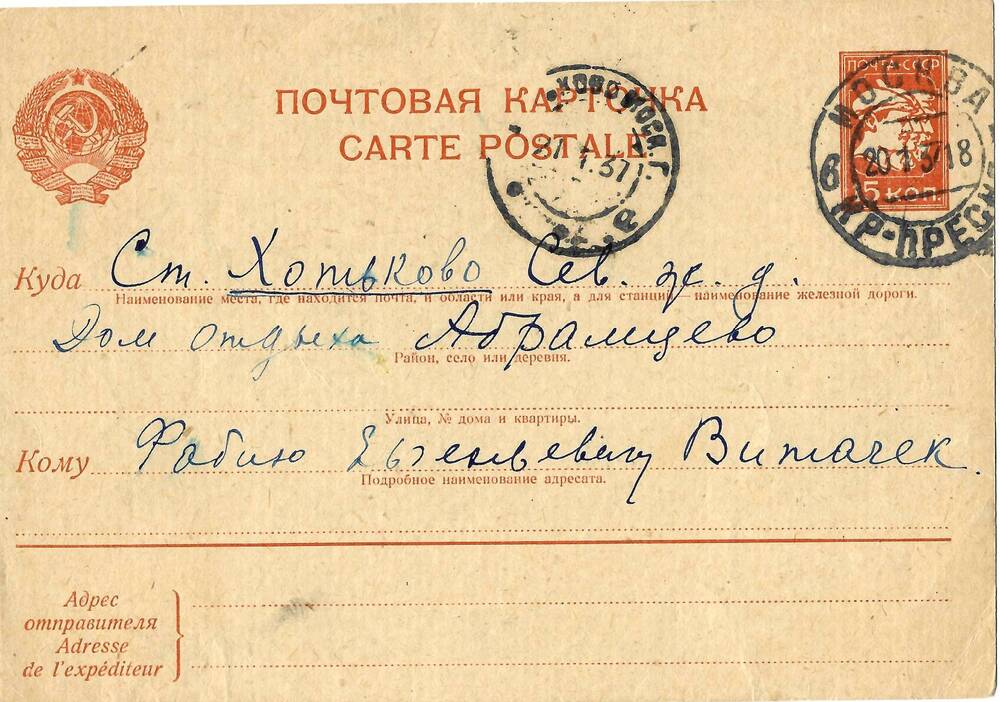 ПОЧТОВАЯ КАРТОЧКА
CARTE POSTALE
ПОЧТА СССР
5 КОП.
МОСКВА
20 1 37 18
6 КР-ПРЕСН
ЬКОВО МОСК. Г.
21 1.37
Куда Ст. Хотьково Сев. ж. д.
Наименование места, где находится почта, и области или края, а для станций – наименование железной дороги.
Дом отдыха Абрамцево
Район, село или деревня.
Улица, № дома и квартиры.
Кому Фабию Евгеньевичу Витачек.
Подробное наименование адресата.
Адрес
отправителя
Adresse
de l'expéditeur